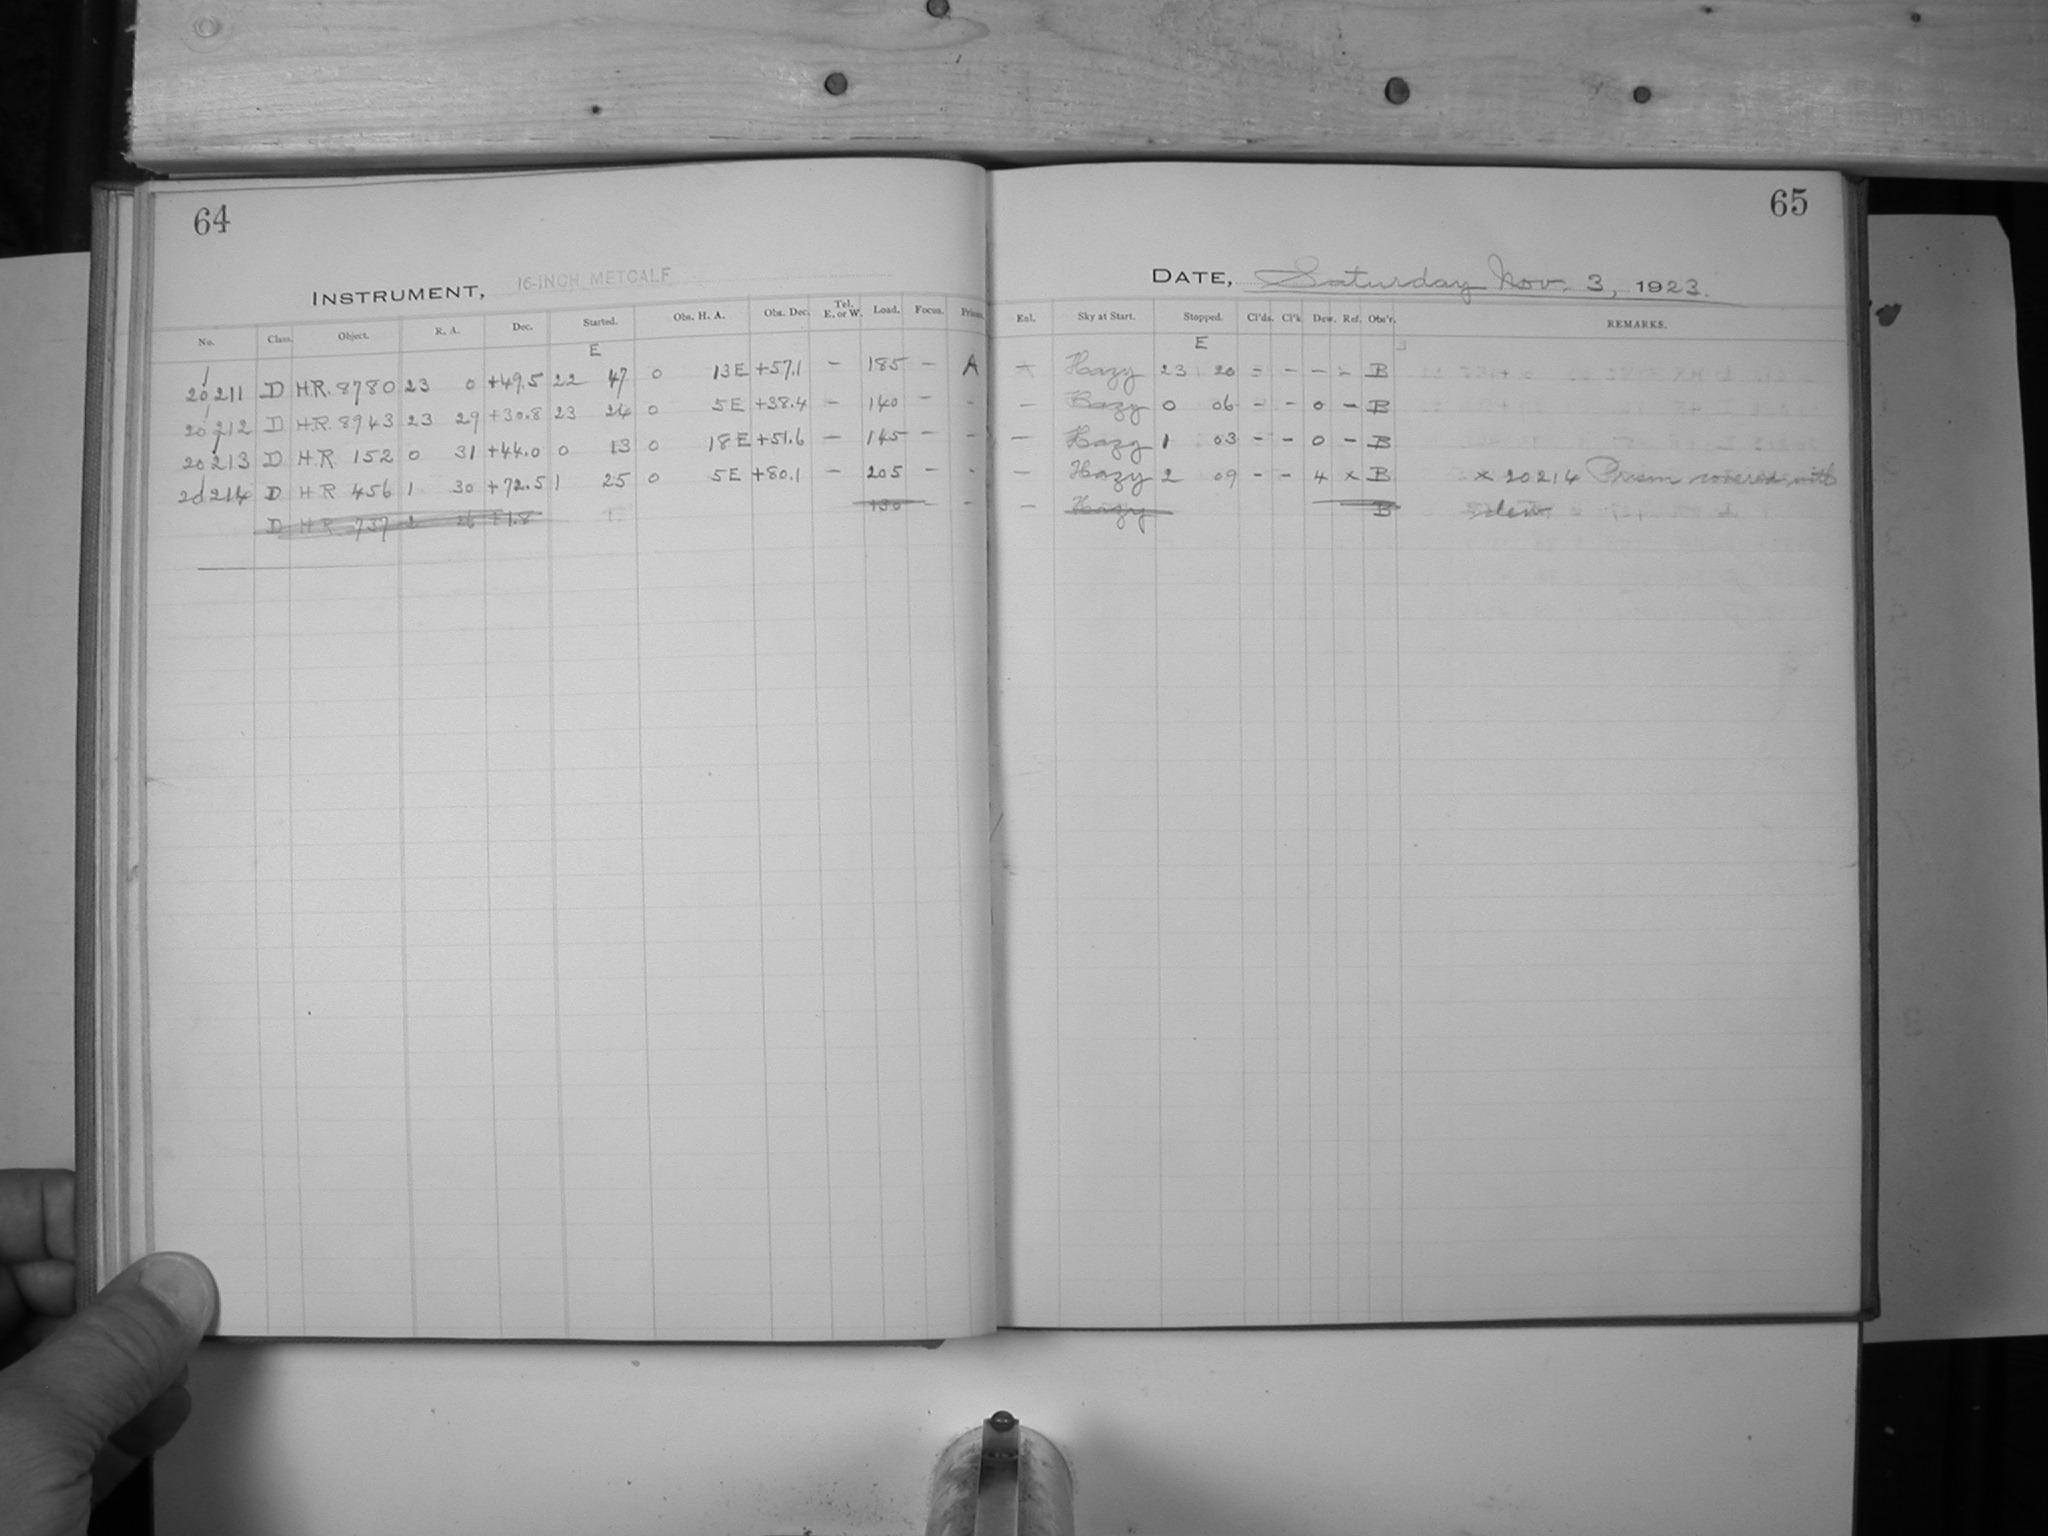 64
INSTRUMENT, 16-INCH METCALF
No. Class. Object. R. A. Dec. Started. Obs. H. A. Obs. Dec. Tel. E. or W. Load. Focus. Prism.
E
20211 D H.R. 8780 23 0 +49.5 22 47 0 13 E +57.1 – 185 – A
20212 D H.R. 8943 23 29 +30.8 23 24 0 5 E +38.4 – 140 – -
20213 D H.R. 152 0 31 +44.0 0 13 0 18 E +51.6 – 145 – -
20214 D H R 456 1 30 +72.5 1 25 0 5 E +80.1 – 205 – -
D H R 737 2 26 +1.8 130 – -
65
DATE, Saturday Nov. 3, 1923.
Enl. Sky at Start. Stopped. Cl'ds. Cl'k Dew. Ref. Obs'r. REMARKS.
E
Hazy 23 20 - - - - B
– Hazy 0 06 - - 0 - B
– Hazy 1 03 - - 0 - B
– Hazy 2 09 - - 4 x B x 20214 Prism covered with
– Hazy B dew